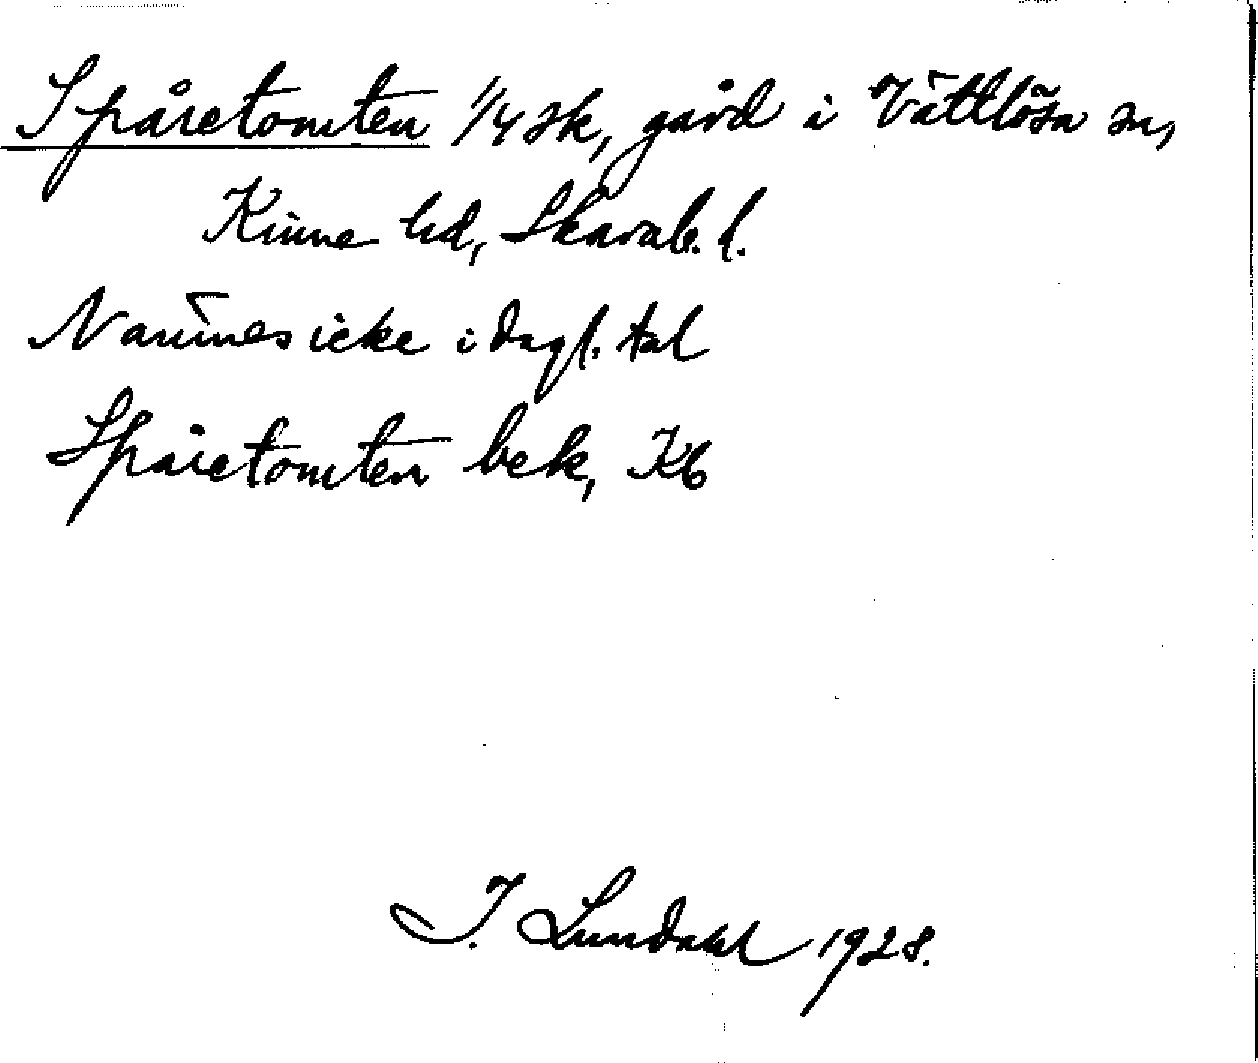 Spåretomten 1/4 sk, gård i Vättlösa sn,
Kinne hd, Skarab. l.
Nämnes icke i dagl. tal
Spåretomten bek, Kb
I. Lundahl 1928.